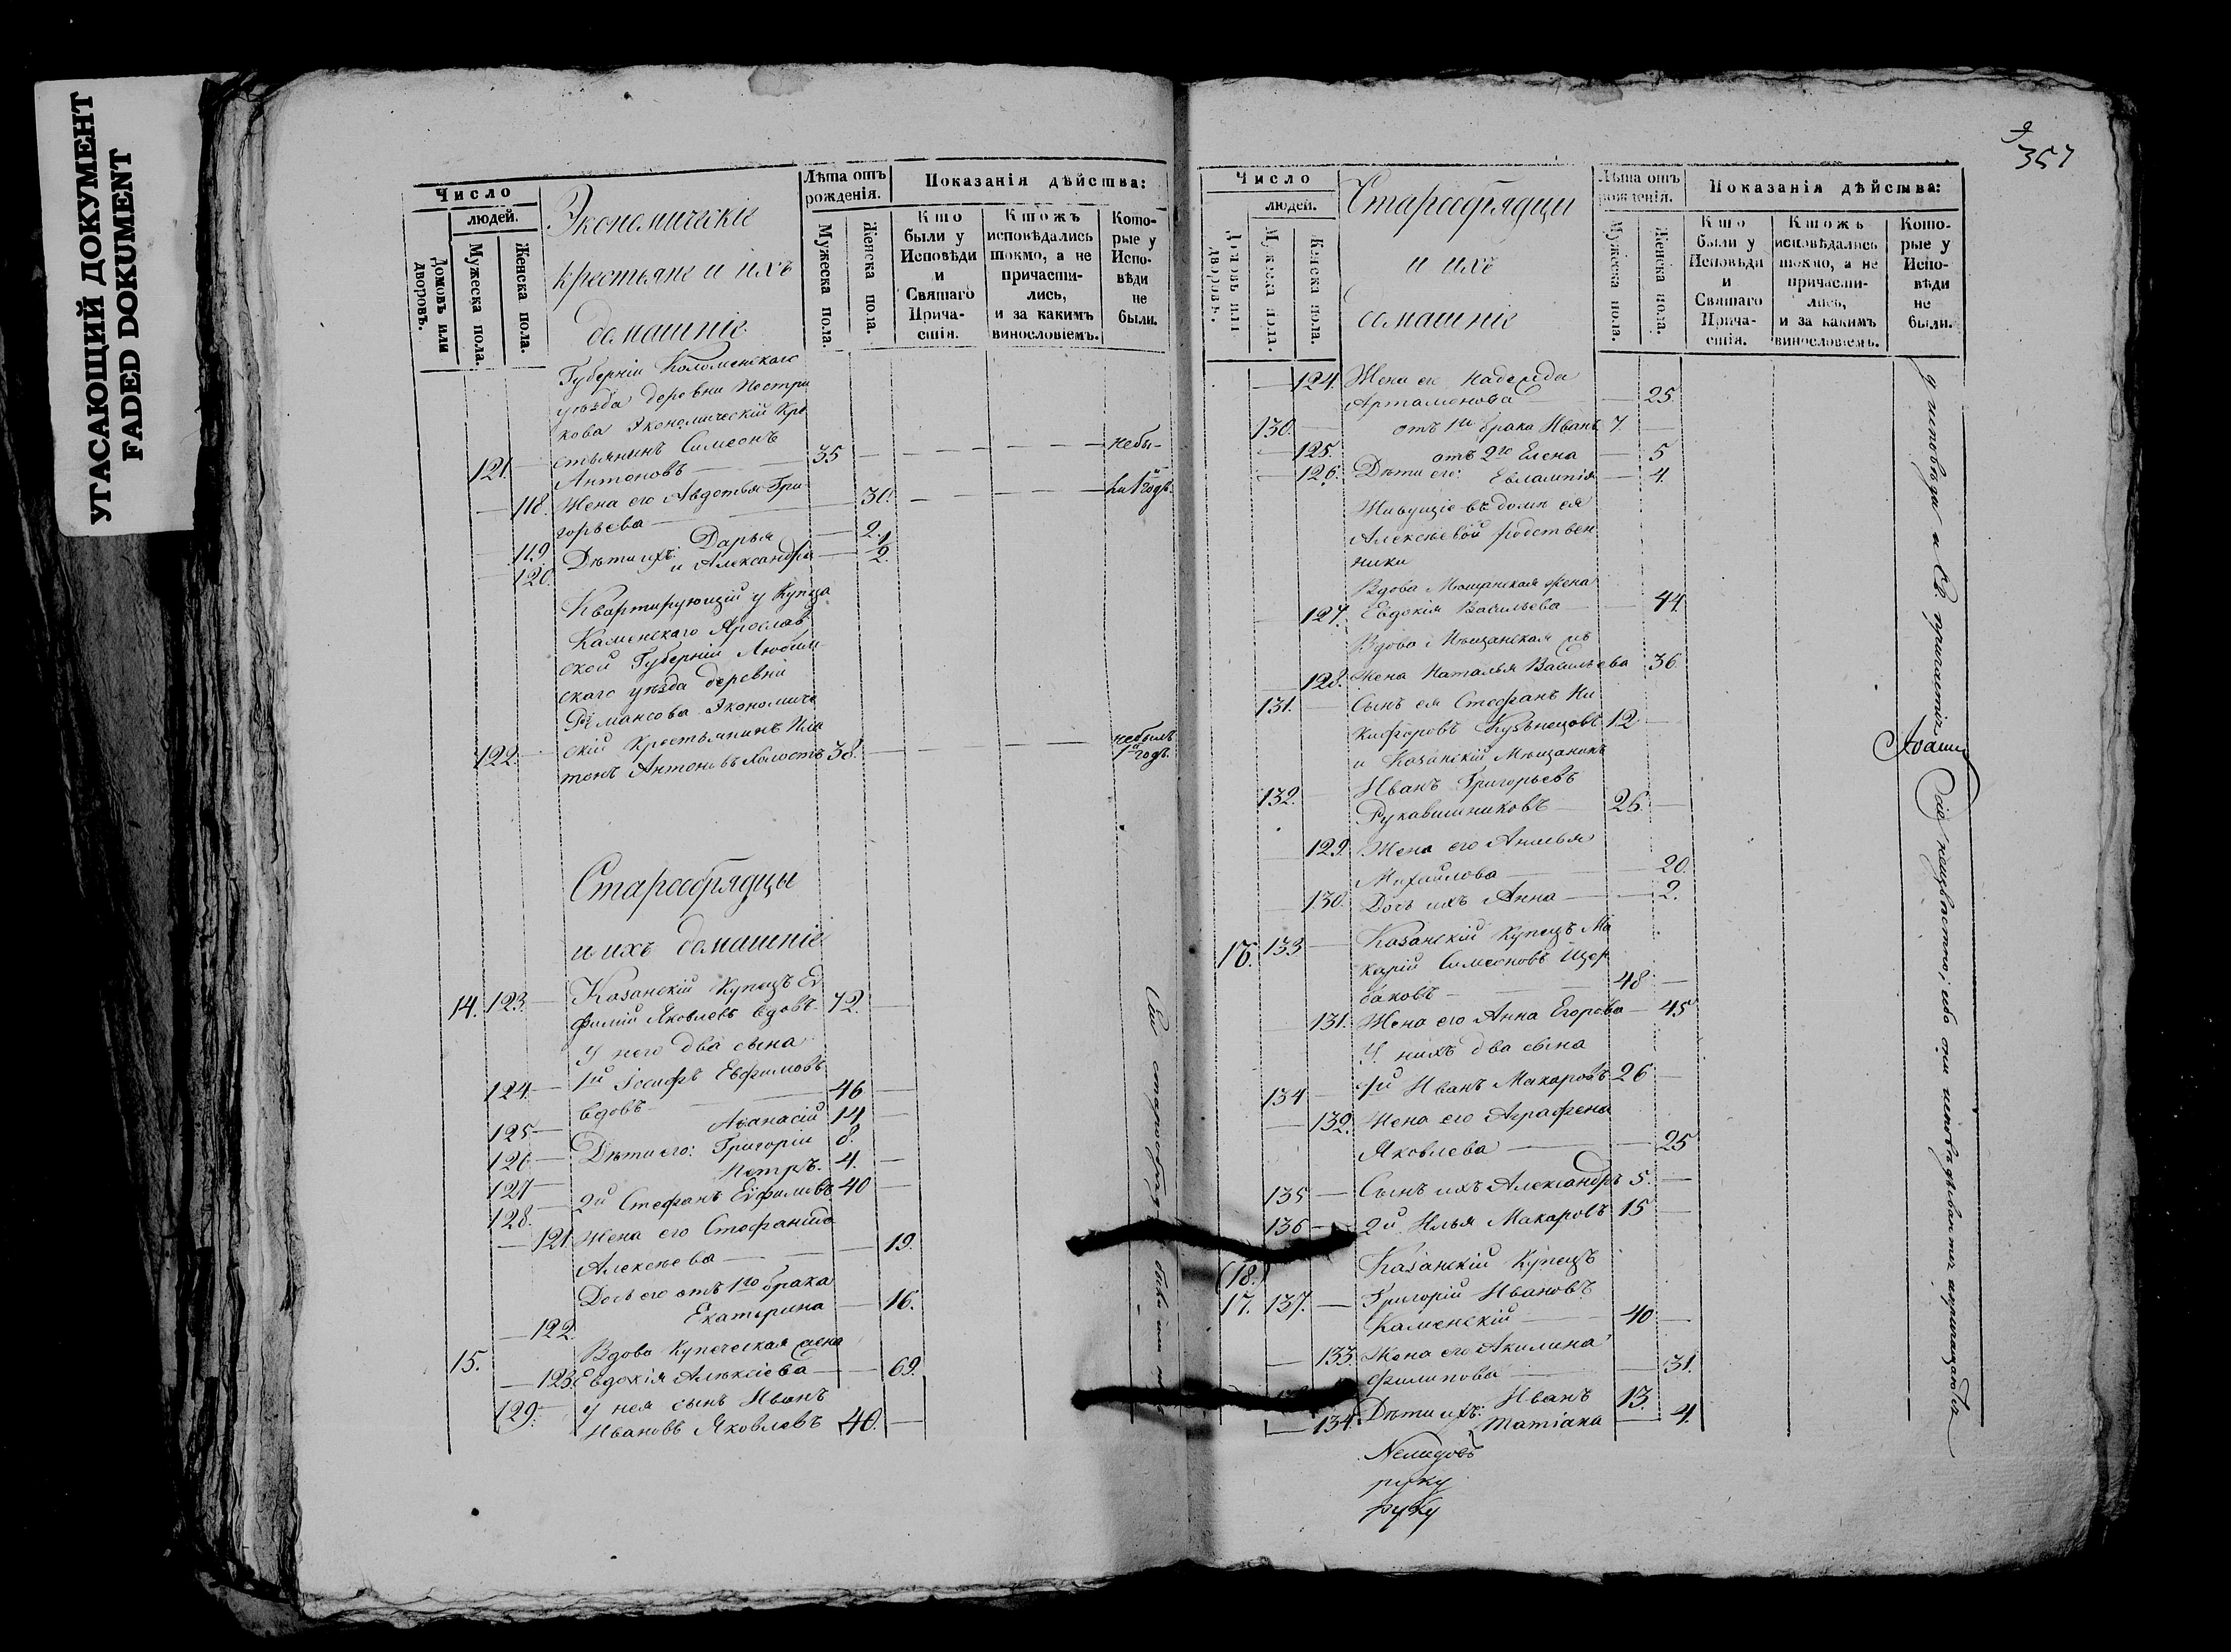 УГАСАЮЩИЙ ДОКУМЕНТ
FADED DOKUMENT
Число
людей.
Домовъ или дворовъ.
Мужеска пола.
Женска пола.
Экономическіе
крестьяне и ихъ
домашніе
Лѣта отъ
рожденія.
Мужеска пола.
Женска пола.
Показанія дѣйства:
Кто
были у
Исповѣди
и
Святаго
Прича-
стія.
Ктожъ
исповѣдались
токмо, а не
причасти-
лись,
и за какимъ
винословіемъ.
Кото-
рые у
Испо-
вѣди
не
были.
Губерніи Коломенскаго
уѣзда деревни Пестри
кова Экономическій Кре
стьянинъ Симеонъ
121. Антоновъ 35 небы-
118. Жена его Авдотья Гри- 30. ли 1й годъ.
горьева
119 Дарья 2.
120. Дѣти ихъ: и Александра 1/2.
Квартирующій у Купца
Каменскаго Ярослав
ской Губерніи Любим
скаго уѣзда деревни
Романсова Экономиче
скій Крестьянинъ Пла
122. тонъ Антоновъ холостъ 38. небылъ
1й годъ.
Старообрядцы
и ихъ домашніе
14. 123 Казанскій Купецъ Ев
фимій Яковлевъ вдовъ 72.
У него два сына
124 1й Іосифъ Евфимовъ
вдовъ 46
125 Аѳанасій 14
126 Дѣти его: Григорій 8.
127 Петръ. 4.
128. 2й Стефанъ Евфимовъ 40
121 Жена его Стефанида
Алексѣева 19.
Дочь его отъ 1го брака
122 Екатерина 16.
15. Вдова Купеческая жена
123 Евдокія Алексіева 69.
129. У нея сынъ Иванъ
Ивановъ Яковлевъ 40.
Сіи старообрядцы
9
357
Число
людей.
Домовъ или дворовъ.
Мужеска пола.
Женска пола.
Старообрядцы
и ихъ
домашніе
Лѣта отъ
рожденія.
Мужеска пола.
Женска пола.
Показанія дѣйства:
Кто
были у
Исповѣди
и
Святаго
Прича-
стія.
Ктожъ
исповѣдались
токмо, а не
причасти-
лись,
и за какимъ
винословіемъ.
Кото-
рые у
Испо-
вѣди
не
были.
124. Жена его Надежда
Артамонова 25
130. отъ 1го брака Иванъ 7.
125. отъ 2го Елена 5
126. Дѣти его: Евлампія 4.
Живущіе въ домѣ ея
Алексѣевой родствен
ники
Вдова Мѣщанская жена
127. Евдокія Васильева 44
Вдова Мѣщанская жъ
128. Жена Наталья Васильева 36.
131. Сынъ ея Стефанъ Ни
кифоровъ Кузнецовъ 12
и Казанскій Мѣщанинъ
132. Иванъ Григорьевъ
Рукавишниковъ 26.
129. Жена его Анисья
Михайлова 20.
130. Дочь ихъ Анна 2.
16. 133 Казанскій Купецъ Ма
карій Симеоновъ Щер
баковъ 48
131. Жена его Анна Егорова 45
У нихъ два сына
134 1й Иванъ Макаровъ 26
132. Жена его Аграфена
Яковлева 25
135 Сынъ ихъ Александръ 5.
136 2й Илья Макаровъ 15
(18.) Казанскій Купецъ
17. 137. Григорій Ивановъ
Каменскій 40
133 Жена его Акилина
Филипова 31.
Дѣти ихъ: Иванъ 13.
134. Татіана 4.
руку
руку
у исповѣди и Св. причастія